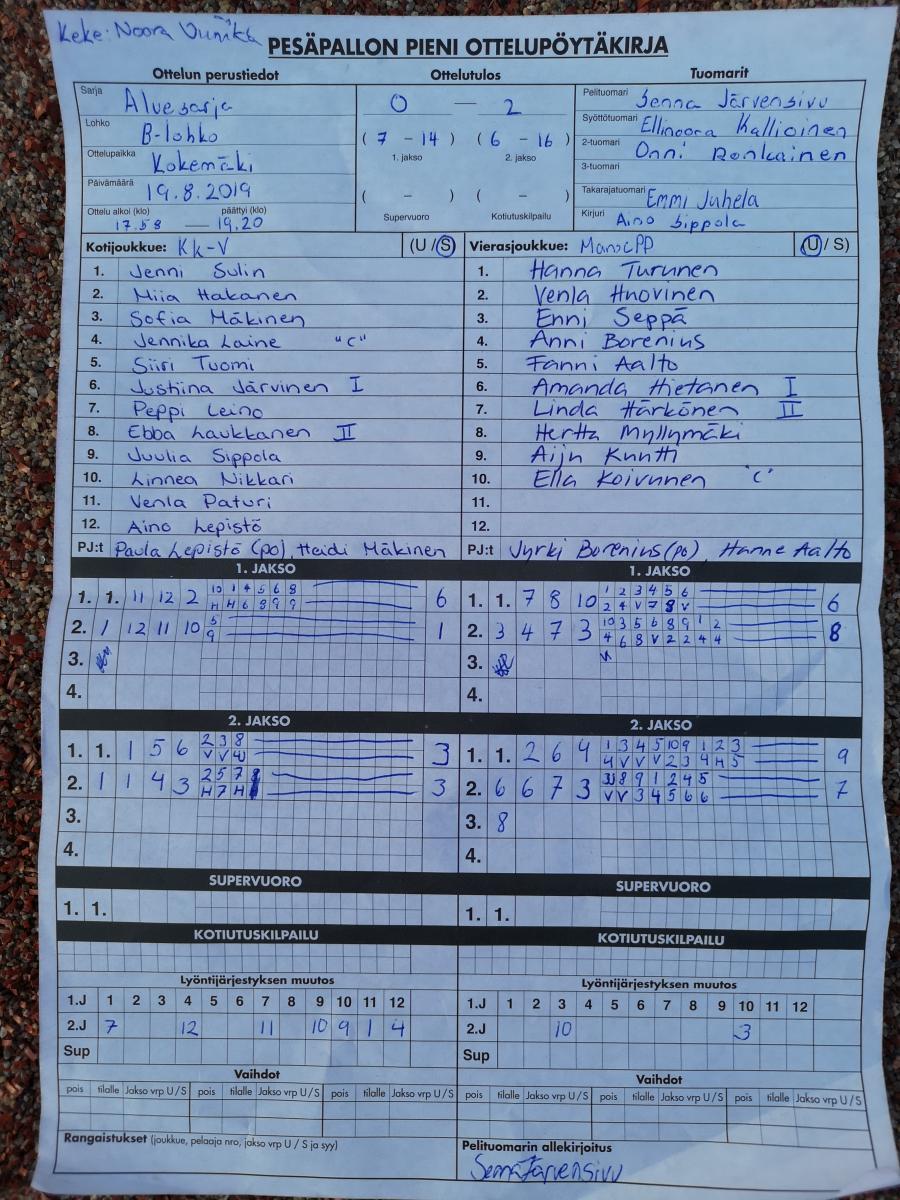 Keke: Noora
PESÄPALLON PIENI OTTELUPÖYTÄKIRJA
Ottelun perustiedot Ottelutulos Tuomarit
Sarja Aluesarja
Lohko B-lohko
Ottelupaikka Kokemäki
Päivämäärä 19.8.2019
Ottelu alkoi (klo) päättyi (klo)
17.58 — 19.20
0 — 2
( 7 - 14 ) ( 6 - 16 )
1. jakso 2. jakso
( - ) ( - )
Supervuoro Kotiutuskilpailu
Pelituomari Senna Järvensivu
Syöttötuomari Ellinoora Kallioinen
2-tuomari Onni Ronkainen
3-tuomari
Takarajatuomari Emmi Juhela
Kirjuri Aino Sippola
Kotijoukkue: Kk-V (U / S)
1. Jenni Sulin
2. Miia Hakanen
3. Sofia Mäkinen
4. Jennika Laine "C"
5. Siiri Tuomi
6. Justiina Järvinen I
7. Peppi Leino
8. Ebba Laukkanen II
9. Juulia Sippola
10. Linnea Nikkari
11. Venla Paturi
12. Aino Lepistö
PJ:t Paula Lepistö (po), Heidi Mäkinen
Vierasjoukkue: MansePP (U / S)
1. Hanna Turunen
2. Venla Huovinen
3. Enni Seppä
4. Anni Borenius
5. Fanni Aalto
6. Amanda Hietanen I
7. Linda Härkönen II
8. Hertta Myllymäki
9. Aiju Kuutti
10. Ella Koivunen 'C'
11.
12.
PJ:t Jyrki Borenius (po), Hanne Aalto
1. JAKSO
1. 1. 11 12 2 10 1 4 5 6 8 6
H H 6 8 9 9
2. 1 12 11 10 5 1
9
3.
4.
1. JAKSO
1. 1. 7 8 10 1 2 3 4 5 6 6
2 4 V 7 8 V
2. 3 4 7 3 10 3 5 6 8 9 1 2 8
4 6 8 V 2 2 4 4
3.
4.
2. JAKSO
1. 1. 1 5 6 2 3 8 3
V V
2. 1 1 4 3 2 5 7 3
H 7 H
3.
4.
2. JAKSO
1. 1. 2 6 4 1 3 4 5 10 9 1 2 3 9
4 V V V 2 3 4 H 5
2. 6 6 7 3 8 9 1 2 4 5 7
V V 3 4 5 6 6
3. 8
4.
SUPERVUORO
1. 1.
SUPERVUORO
1. 1.
KOTIUTUSKILPAILU
KOTIUTUSKILPAILU
Lyöntijärjestyksen muutos
1.J 1 2 3 4 5 6 7 8 9 10 11 12
2.J 7 12 11 10 9 1 4
Sup
Lyöntijärjestyksen muutos
1.J 1 2 3 4 5 6 7 8 9 10 11 12
2.J 10 3
Sup
Vaihdot
pois tilalle Jakso vrp U / S pois tilalle Jakso vrp U / S pois tilalle Jakso vrp U / S
Vaihdot
pois tilalle Jakso vrp U / S pois tilalle Jakso vrp U / S pois tilalle Jakso vrp U / S
Rangaistukset (joukkue, pelaaja nro, jakso vrp U / S ja syy)
Pelituomarin allekirjoitus
Senna Järvensivu